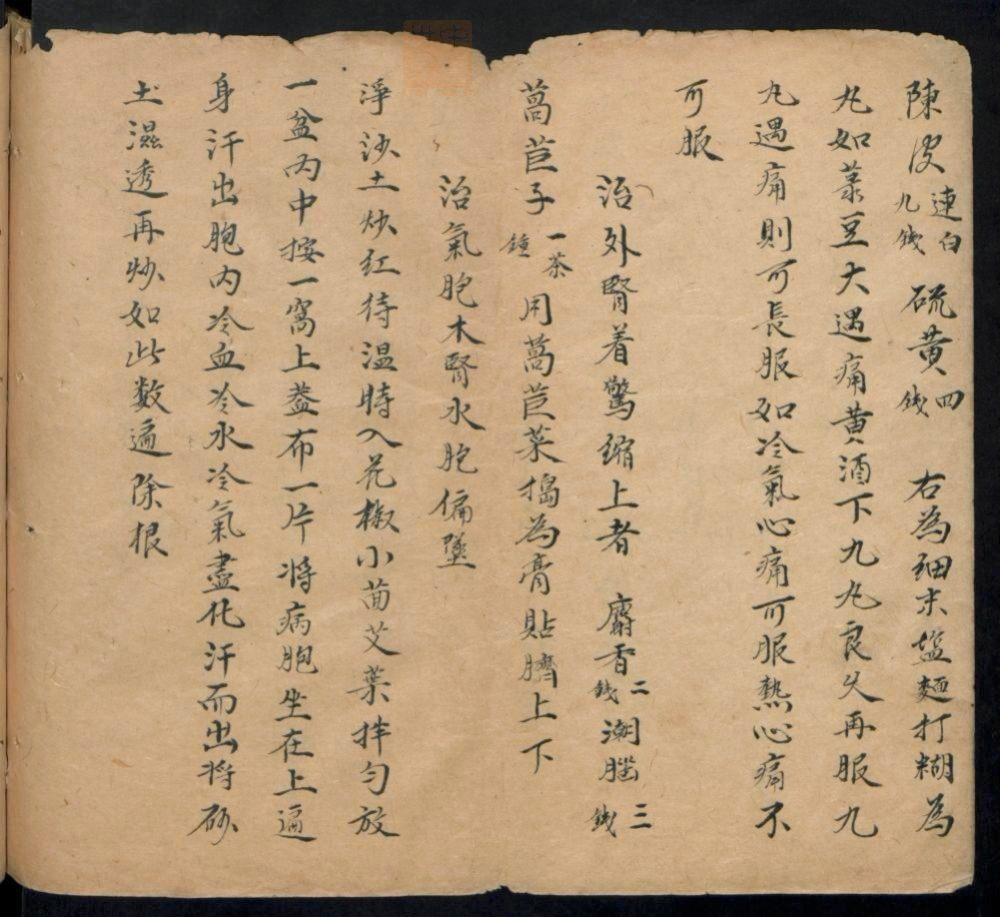 陳皮連白九錢硫黄四錢右為細末塩麵打糊為
丸如菉豆大遇痛黄酒下九丸良久再服九
丸遇痛則可長服如冷氣心痛可服熱心痛不
可服
治外腎着驚縮上者麝香二錢潮腦三錢
萵苣子一茶鍾用萵苣菜搗為膏貼臍上下
治氣胞木腎水胞偏墜
淨沙土炒紅待温時入花椒小茴艾葉拌匀放
一盆内中按一窩上蓋布一片将病胞坐在上遍
身汗出胞内冷血冷水冷氣盡化汗而出将砂
土濕透再炒如此数遍除根